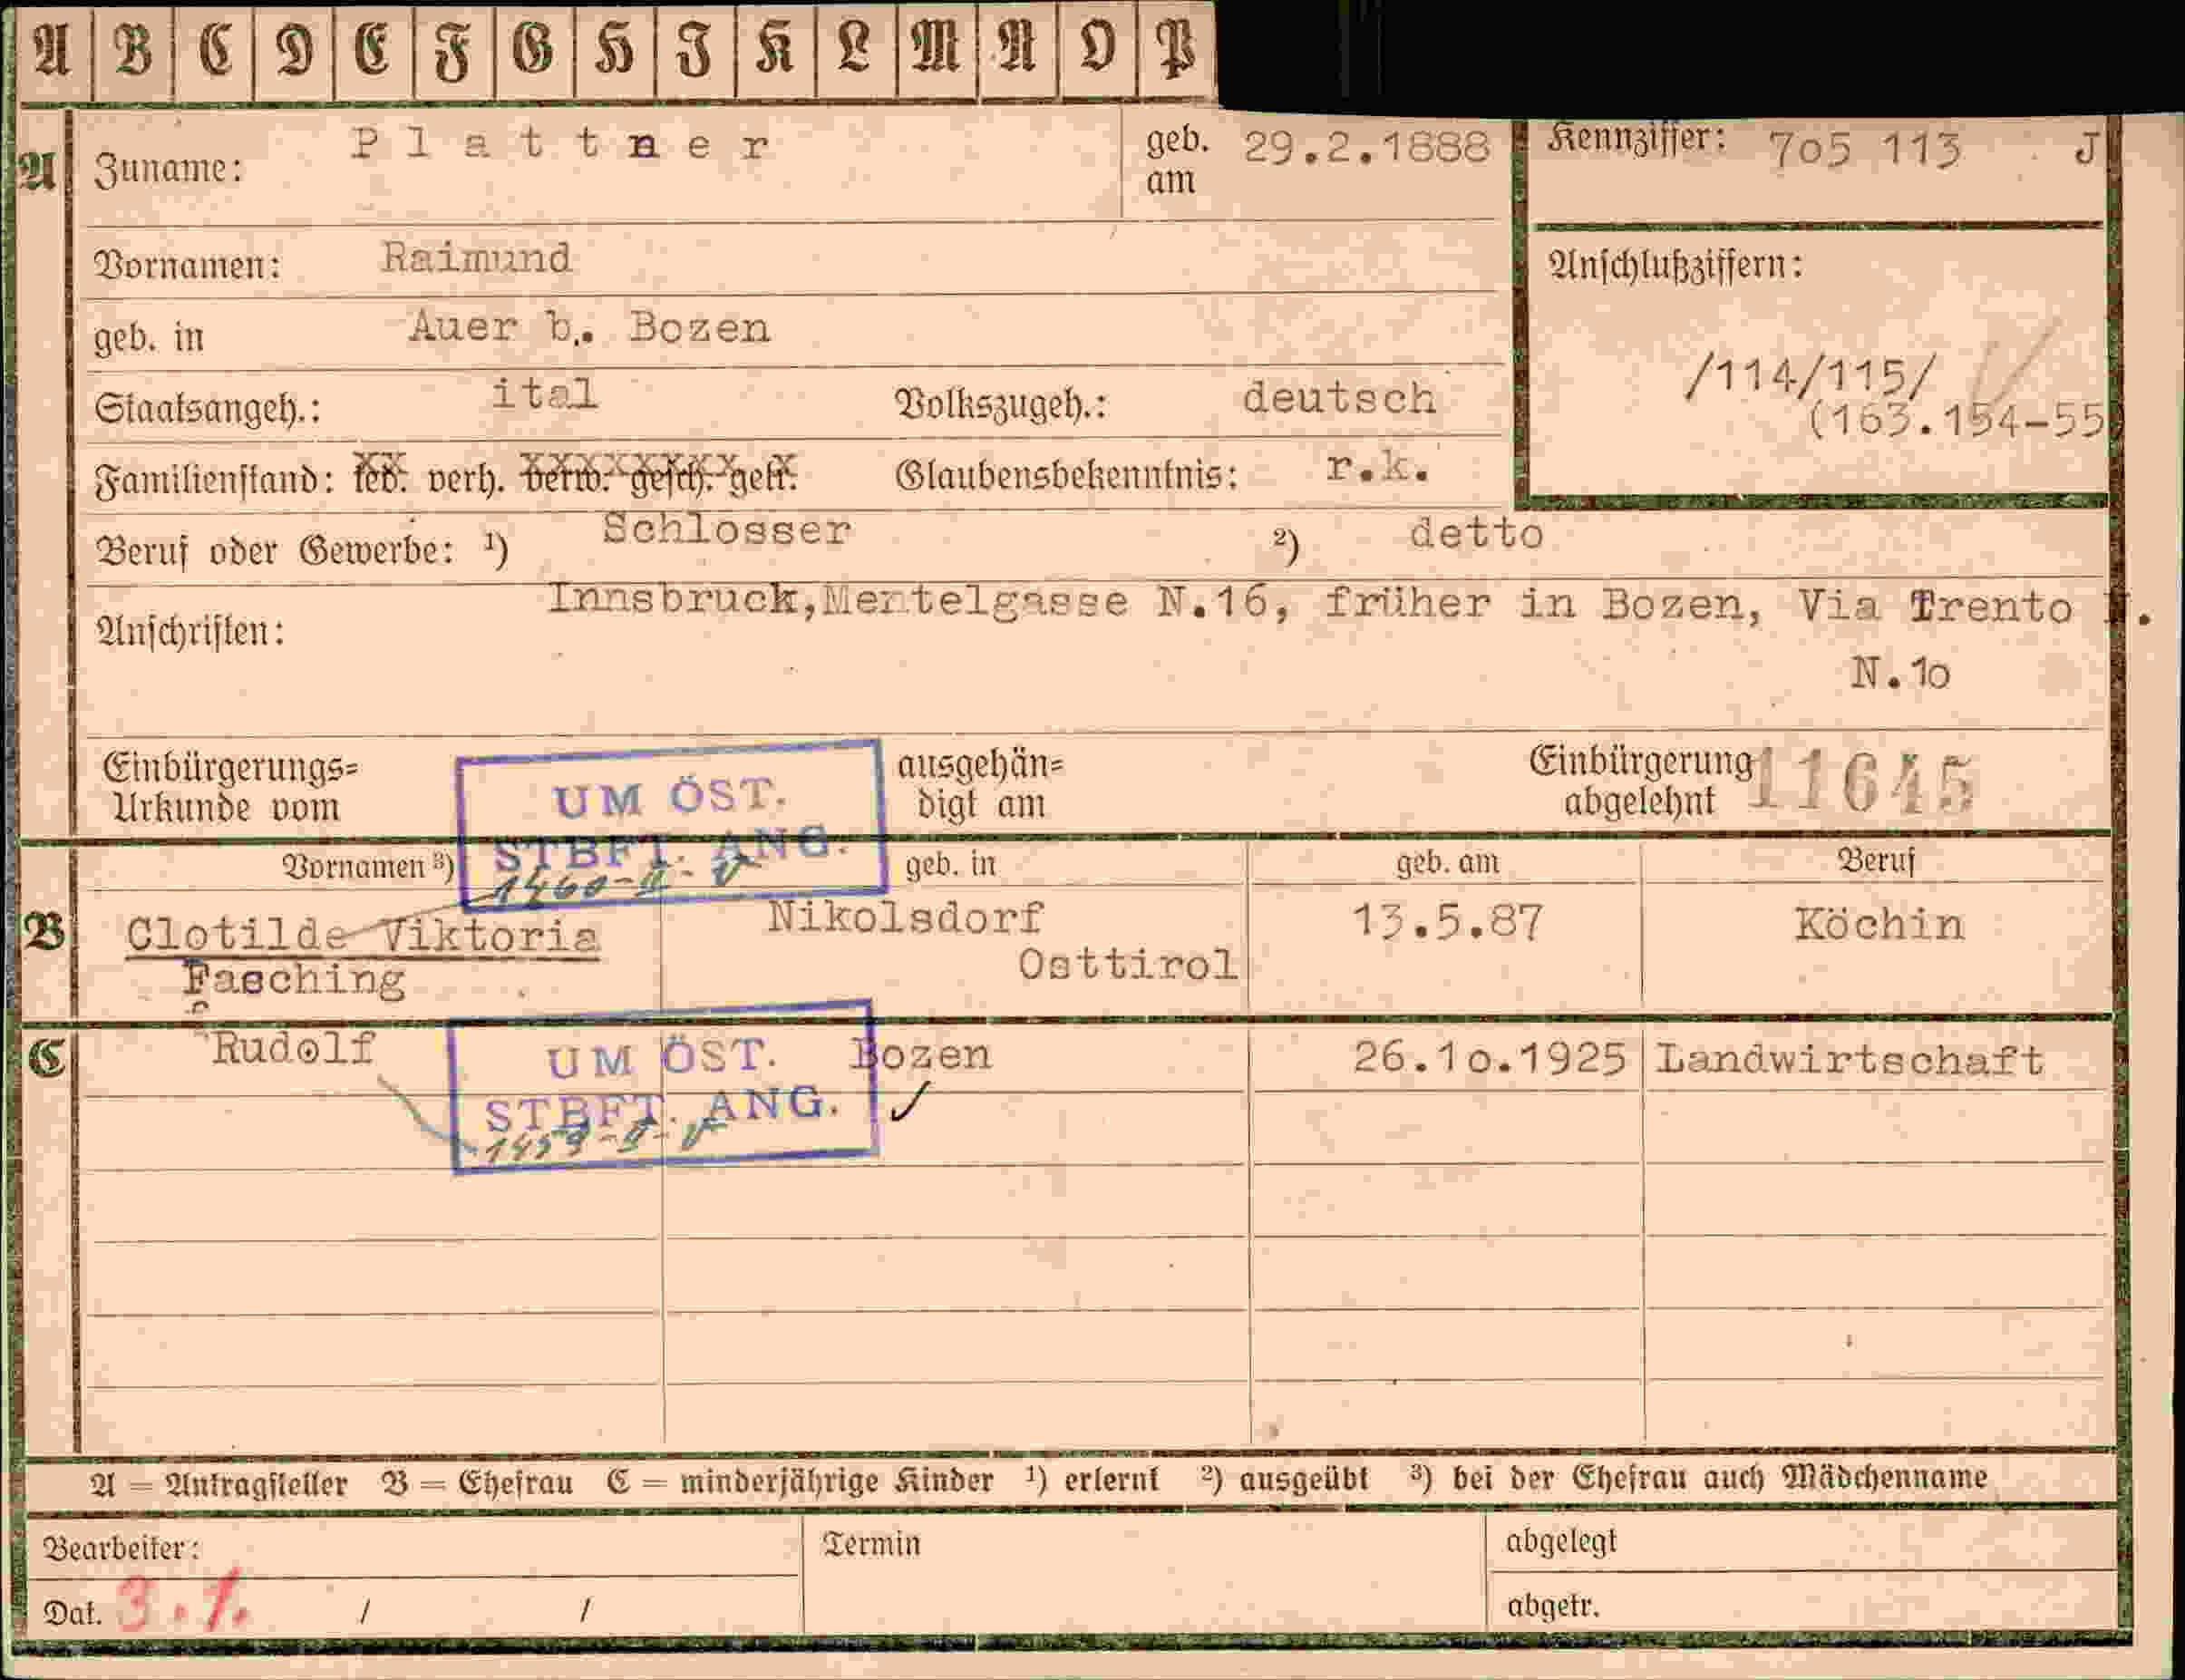 A B C D E F G H J K L M N O P
A Zuname: Plattner geb. am 29.2.1888 Kennziffer: 7o5 113 J
Vornamen: Raimund
Anschlußziffern:
geb. in Auer b. Bozen
/114/115/
Staatsangeh.: ital Volkszugeh.: deutsch
(163.154-55
Familienstand: led. verh. verw. gesch. getr. Glaubensbekenntnis: r.k.
Beruf oder Gewerbe: ¹) Schlosser ²) detto
Anschriften: Innsbruck,Mentelgasse N.16, früher in Bozen, Via Trento
N.1o
Einbürgerungs=
Urkunde vom
ausgehän=
digt am
Einbürgerung
abgelehnt 11645
UM ÖST.
STBFT. ANG.
1460-II-V
Vornamen ³) geb. in geb. am Beruf
B Clotilde Viktoria Nikolsdorf 13.5.87 Köchin
Fasching Osttirol
C Rudolf Bozen 26.1o.1925 Landwirtschaft
UM ÖST.
STBFT. ANG.
1459-II-V
A = Antragsteller B = Ehefrau C = minderjährige Kinder ¹) erlernt ²) ausgeübt ³) bei der Ehefrau auch Mädchenname
Bearbeiter: Termin abgelegt
Dat. 3.1. / / abgetr.